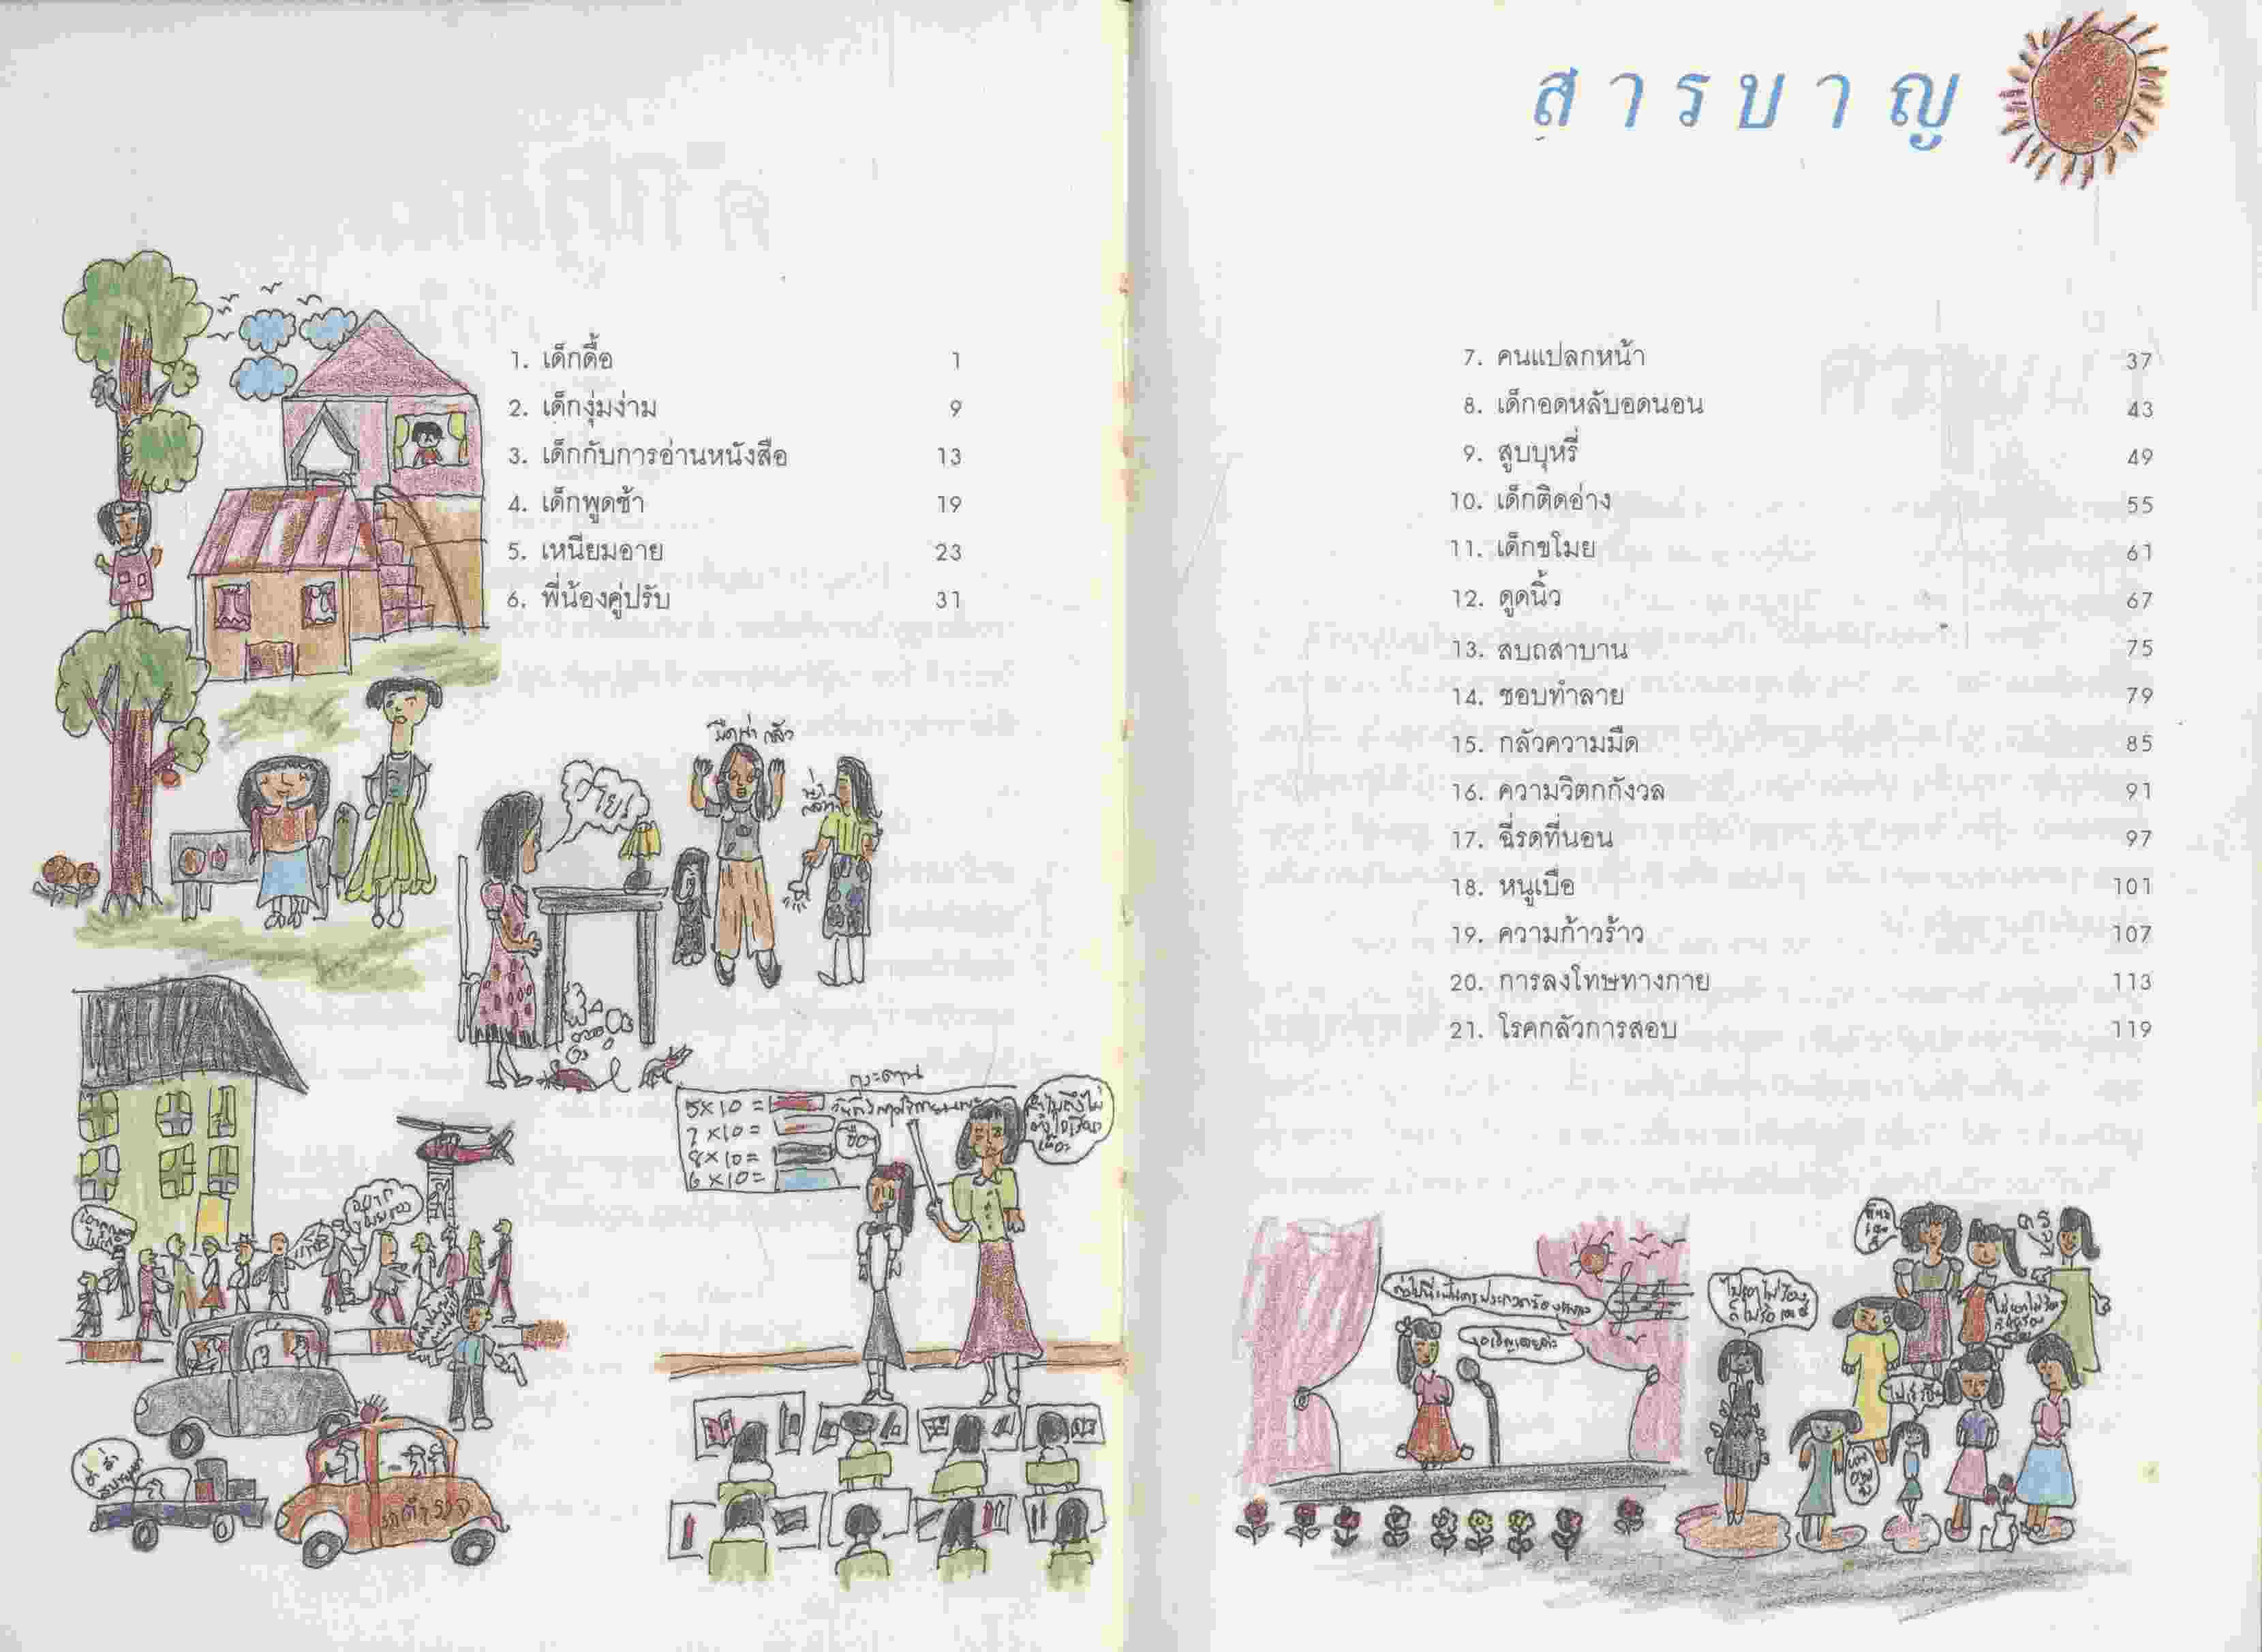 สารบาญ
1. เด็กดื้อ 1
2. เด็กงุ่มง่าม 9
3. เด็กกับการอ่านหนังสือ 13
4. เด็กพูดช้า 19
5. เหนียมอาย 23
6. พี่น้องคู่ปรับ 31
7. คนแปลกหน้า 37
8. เด็กอดหลับอดนอน 43
9. สูบบุหรี่ 49
10. เด็กติดอ่าง 55
11. เด็กขโมย 61
12. ดูดนิ้ว 67
13. สบถสาบาน 75
14. ชอบทำลาย 79
15. กลัวความมืด 85
16. ความวิตกกังวล 91
17. ฉี่รดที่นอน 97
18. หนูเบื่อ 101
19. ความก้าวร้าว 107
20. การลงโทษทางกาย 113
21. โรคกลัวการสอบ 119
กระดาน
5×10 =
7×10 =
8×10 =
6×10 =
รถตำรวจ
ครู